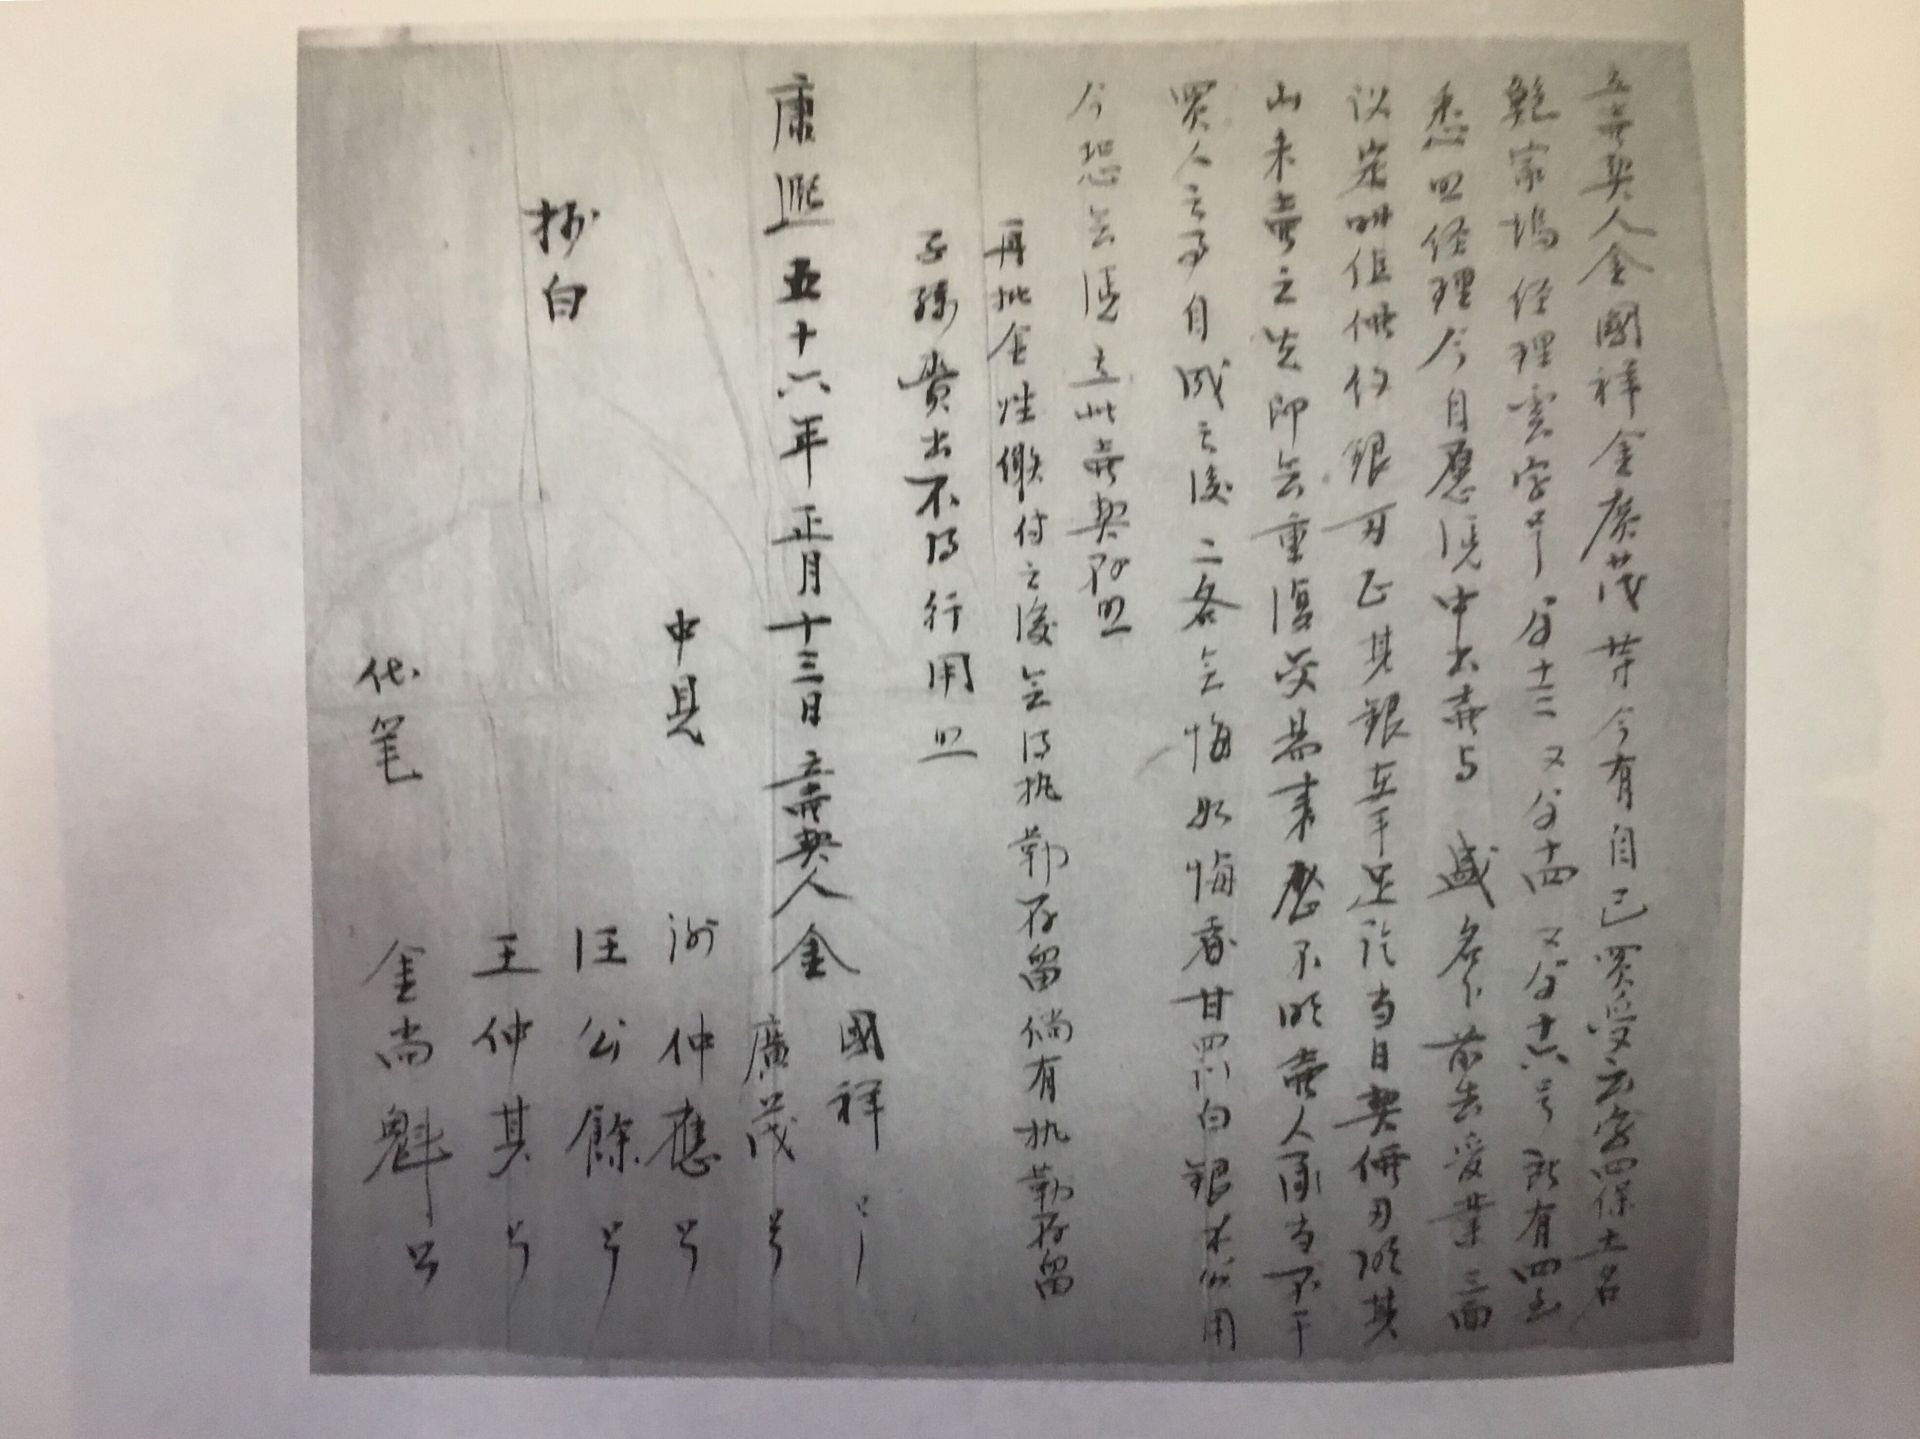 立賣契人金國祥金廣茂等今有自己買受雲字四保土名
鮑家塢经理雲字号分十三又分十四又分十六号所有四至
悉照经理今自愿凭中出賣与 盛名下前去受業三面
议定時值價仍銀 正其銀在手足讫当日契價 明其
山未賣之先即無重復交易来歷不明賣人承当不干
買人之事自成之後二各無悔如悔者甘罰白銀 公用
今恐無凭立此賣契存照
再批金姓繳付之後無得执勒存留倘有执勒存留
子孫賫出不得行用照
康熙五十六年正月十三日立賣契人金 國祥 号
廣茂 号
中見 謝仲應 号
汪公餘 号
抄白
王仲其 号
代笔 金尚魁 号